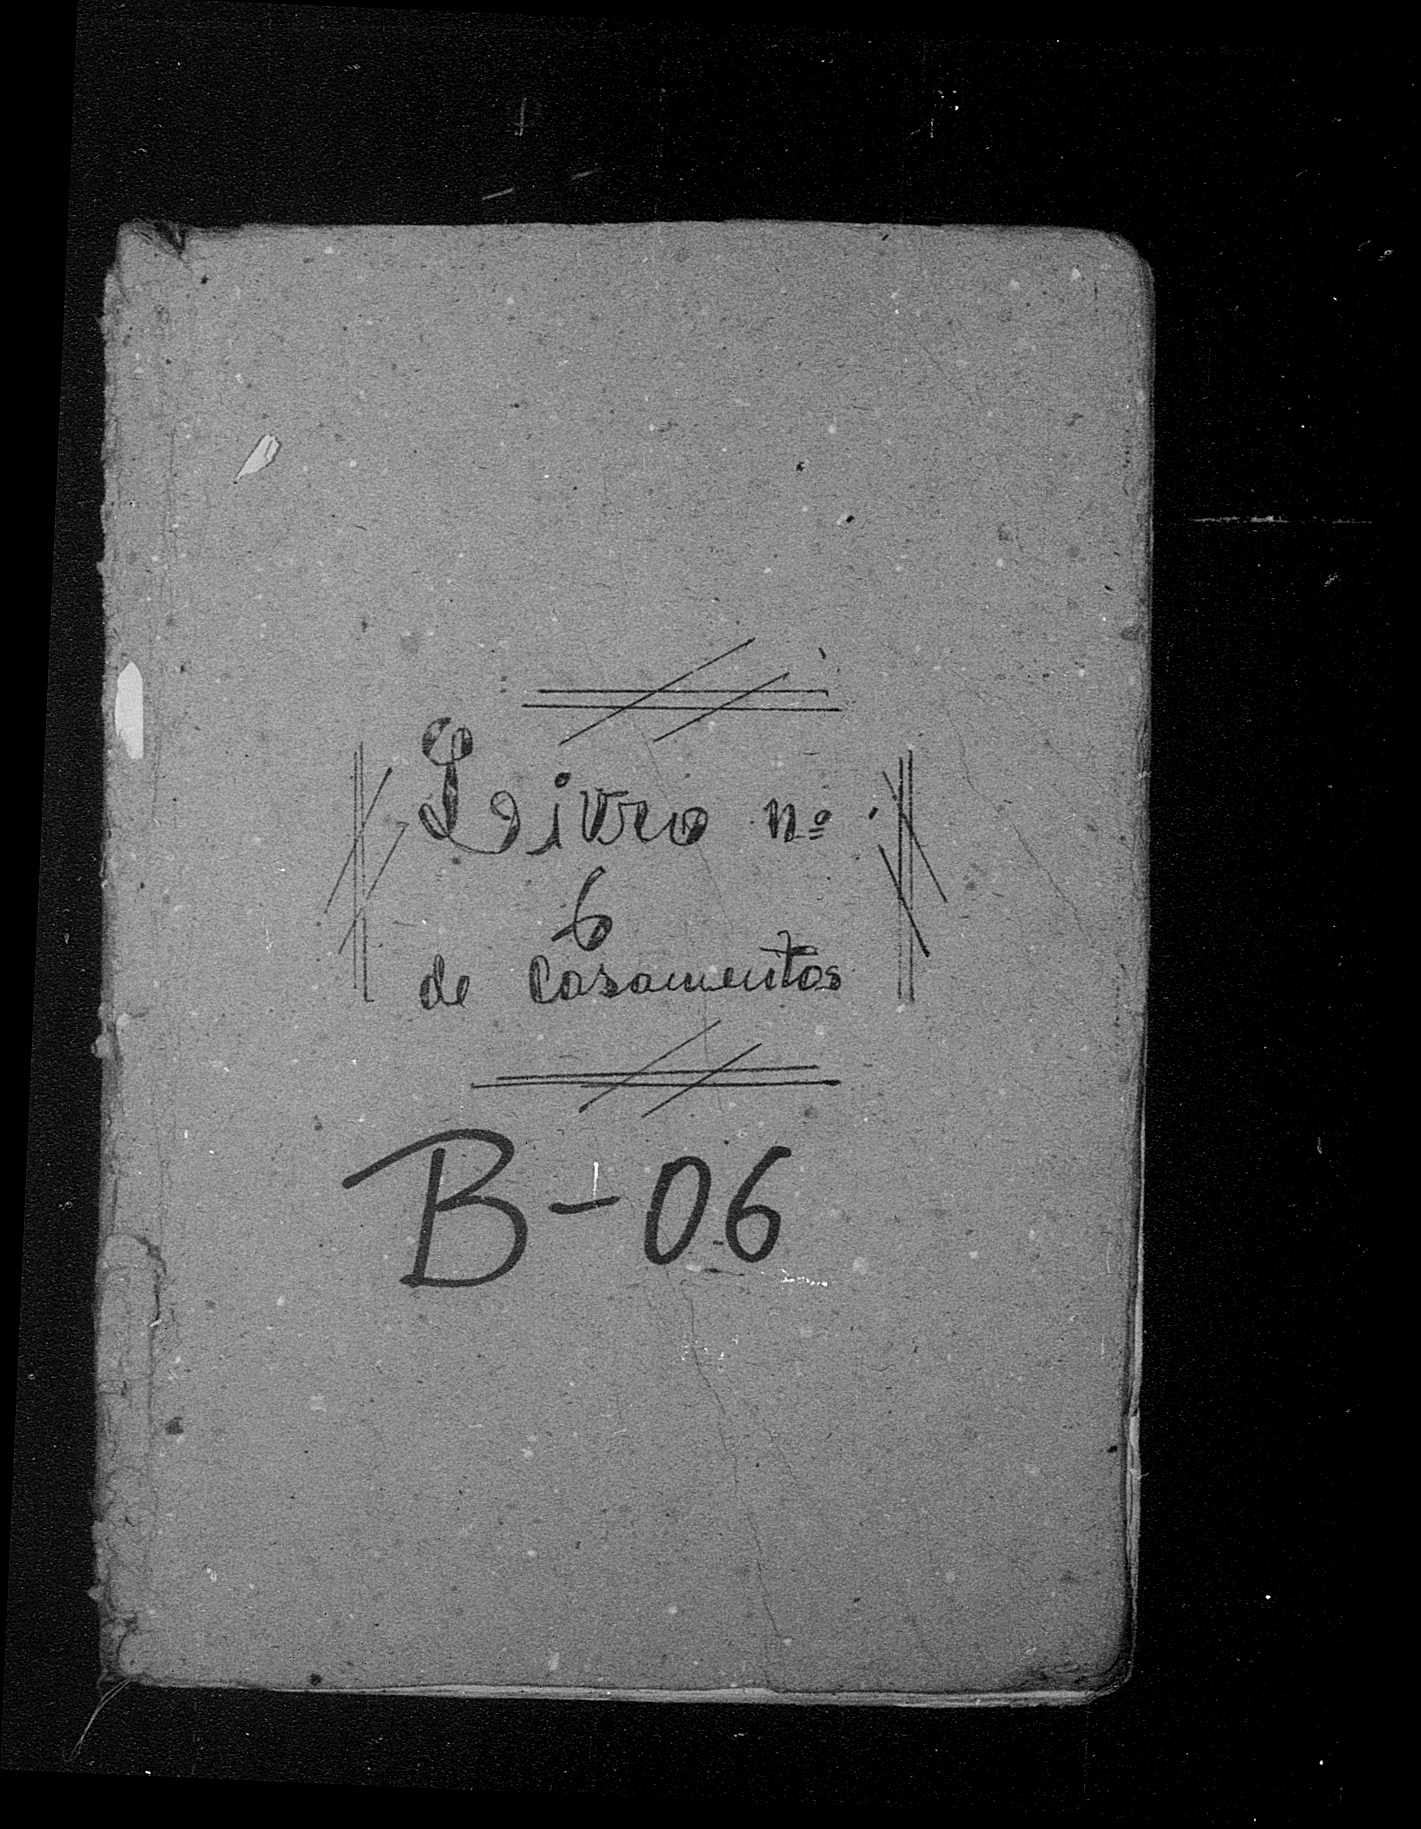 Livro nº
6
de Casamentos
B-06